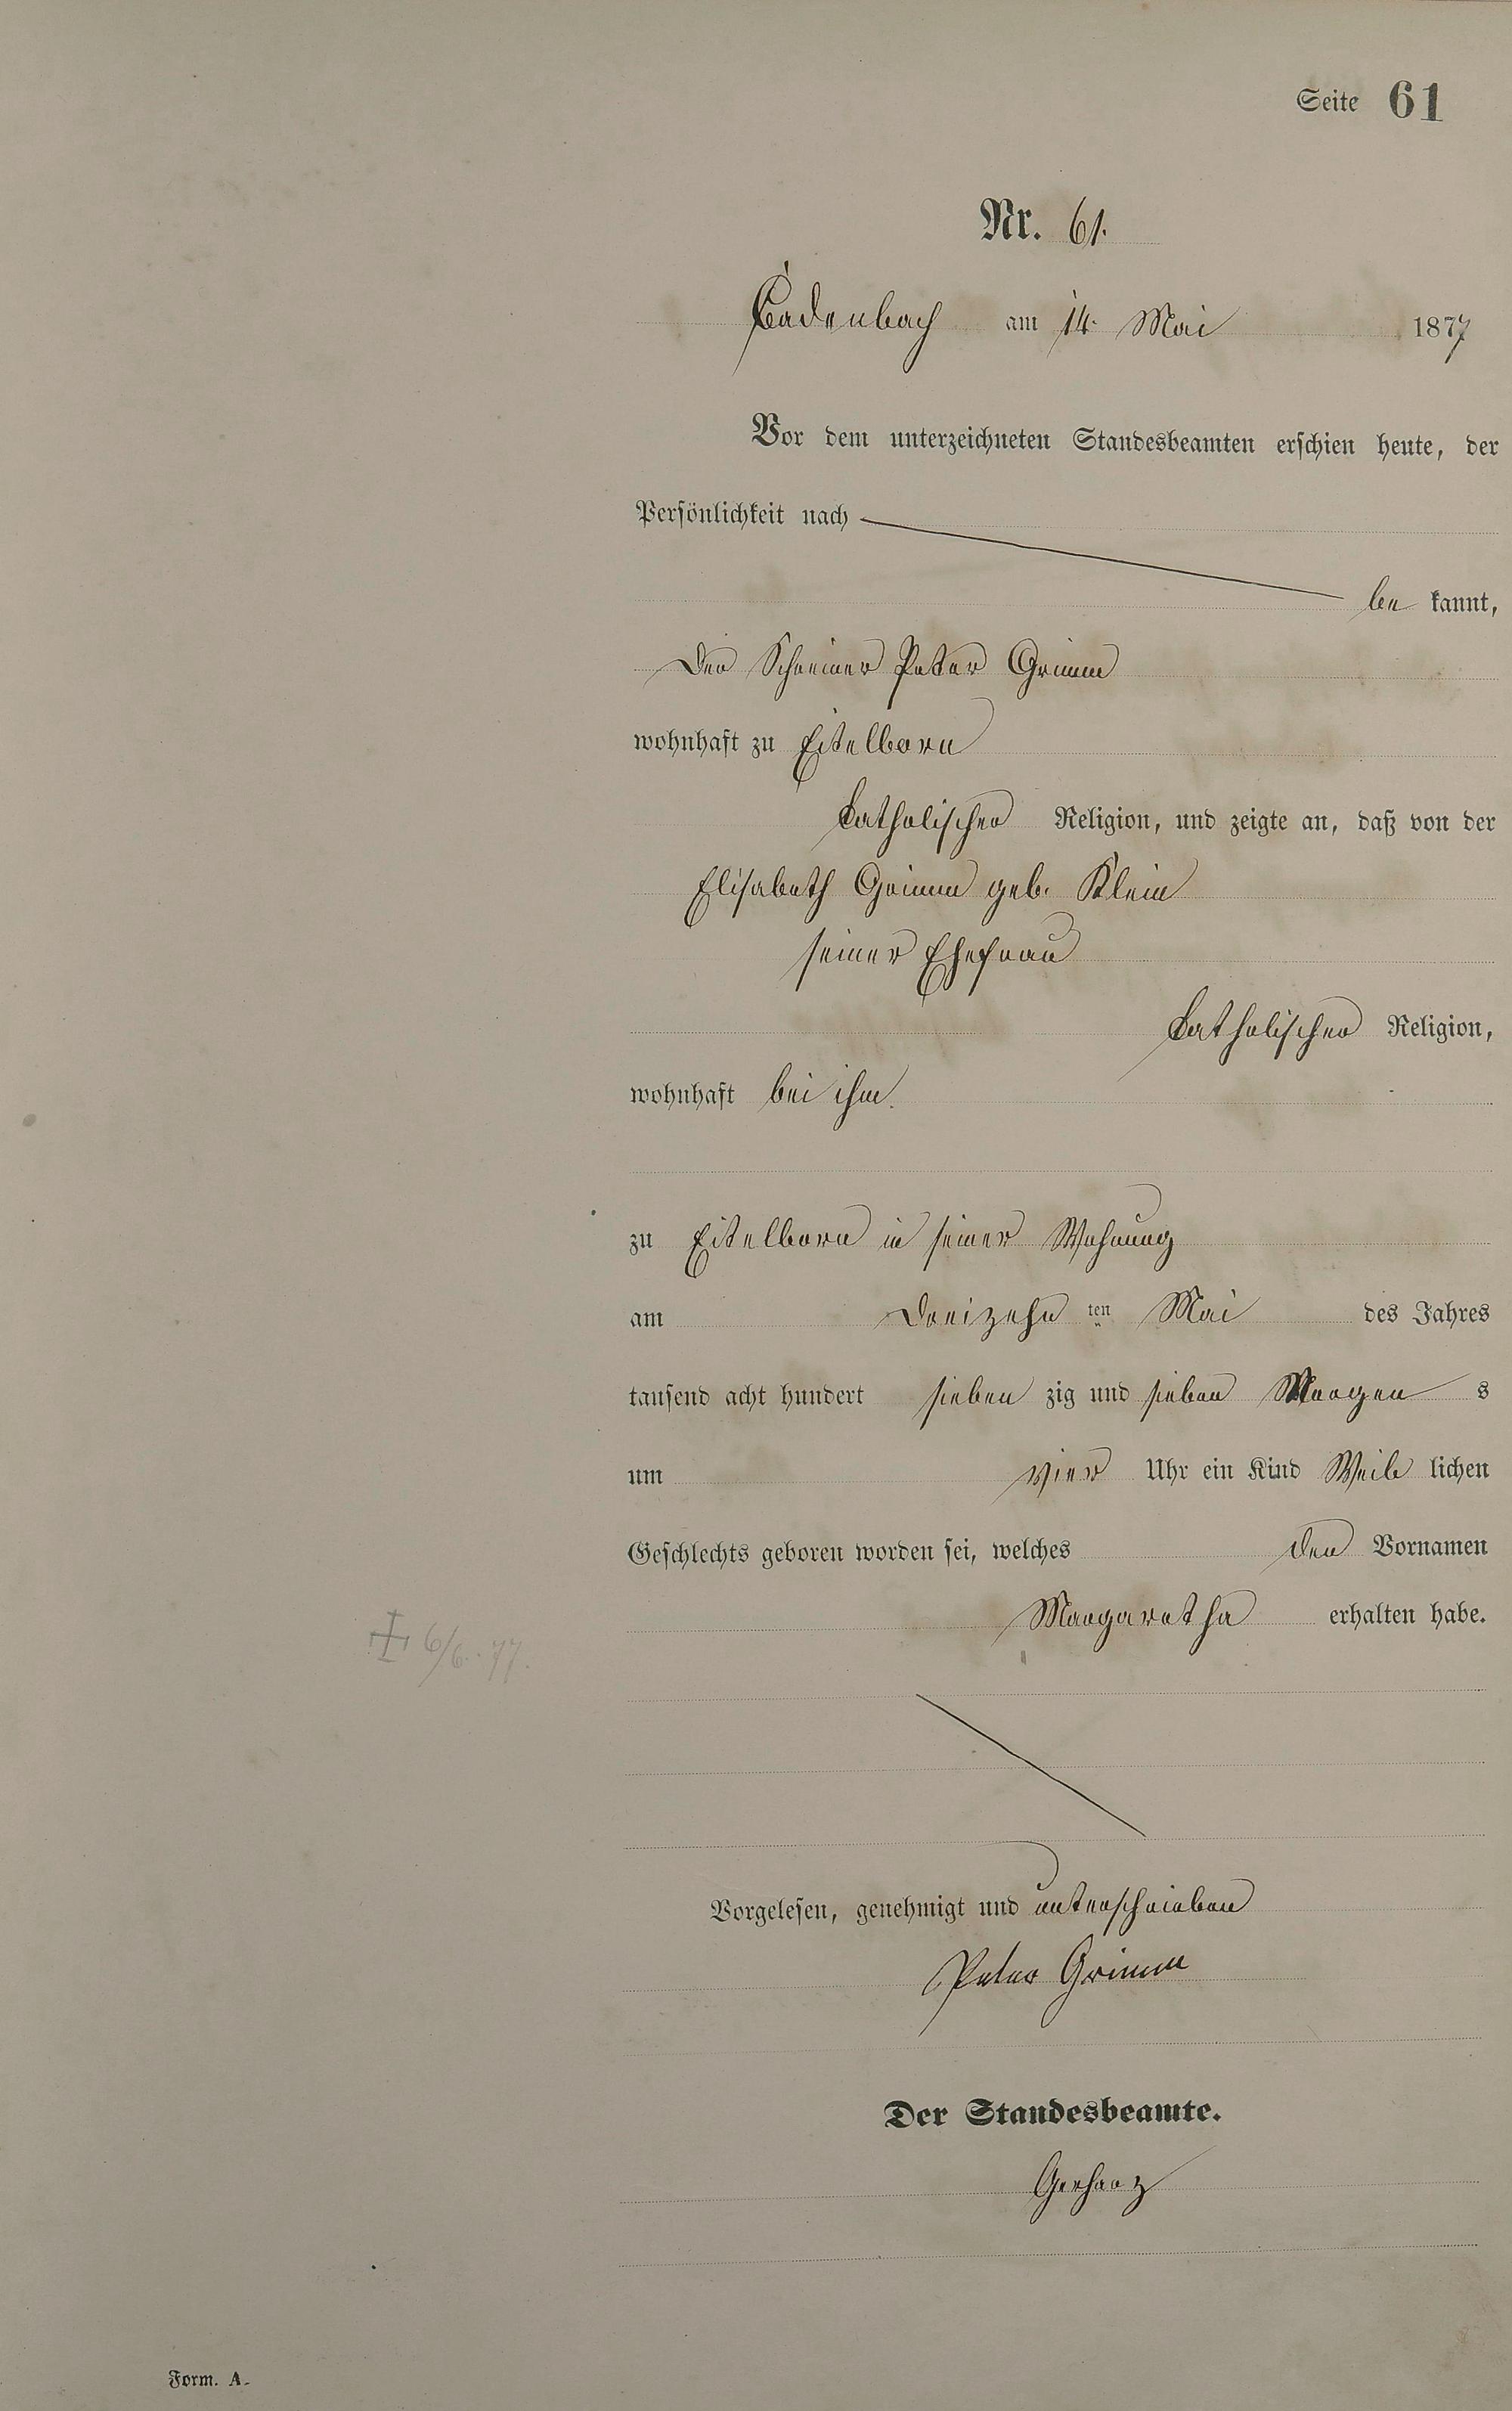 Seite 61
Nr. 61.
Cadenbach am 14. Mai 1877
Vor dem unterzeichneten Standesbeamten erschien heute, der
Persönlichkeit nach
be kannt,
Der Schreiner Peter Grimm
wohnhaft zu Eitelborn
katholischer Religion, und zeigte an, daß von der
Elisabeth Grimm geb. Klein
seiner Ehefrau
katholischer Religion,
wohnhaft bei ihm.
zu Eitelborn in seiner Wohnung
am Dreizehn ten Mai des Jahres
tausend acht hundert sieben zig und sieben Morgen s
um vier Uhr ein Kind Weib lichen
Geschlechts geboren worden sei, welches den Vornamen
Margaretha erhalten habe.
† 6/6. 77.
Vorgelesen, genehmigt und unterschrieben
Peter Grimm
Der Standesbeamte.
Gerharz
Form. A.